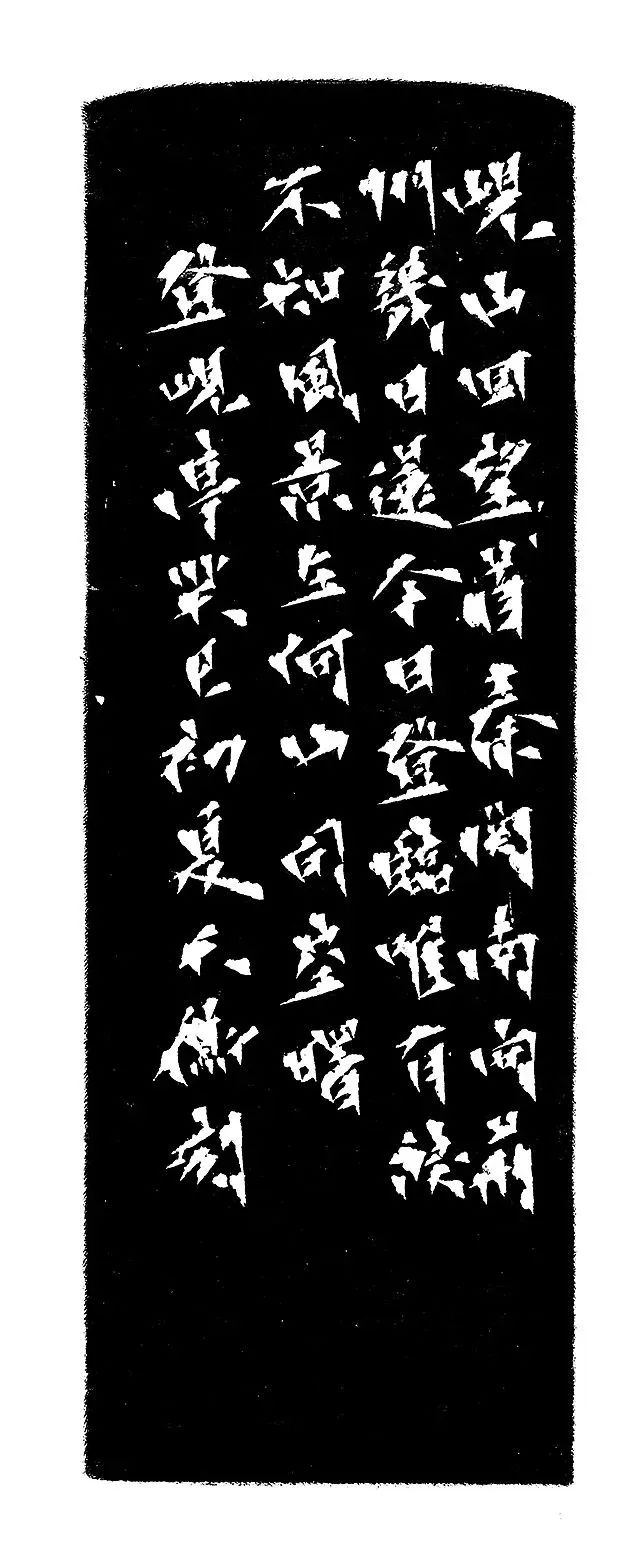 峴山回望首秦関南向荊
州幾日還今日登臨唯有淚
不知風景在何山司空曙
登峴亭癸巳初夏衡刻